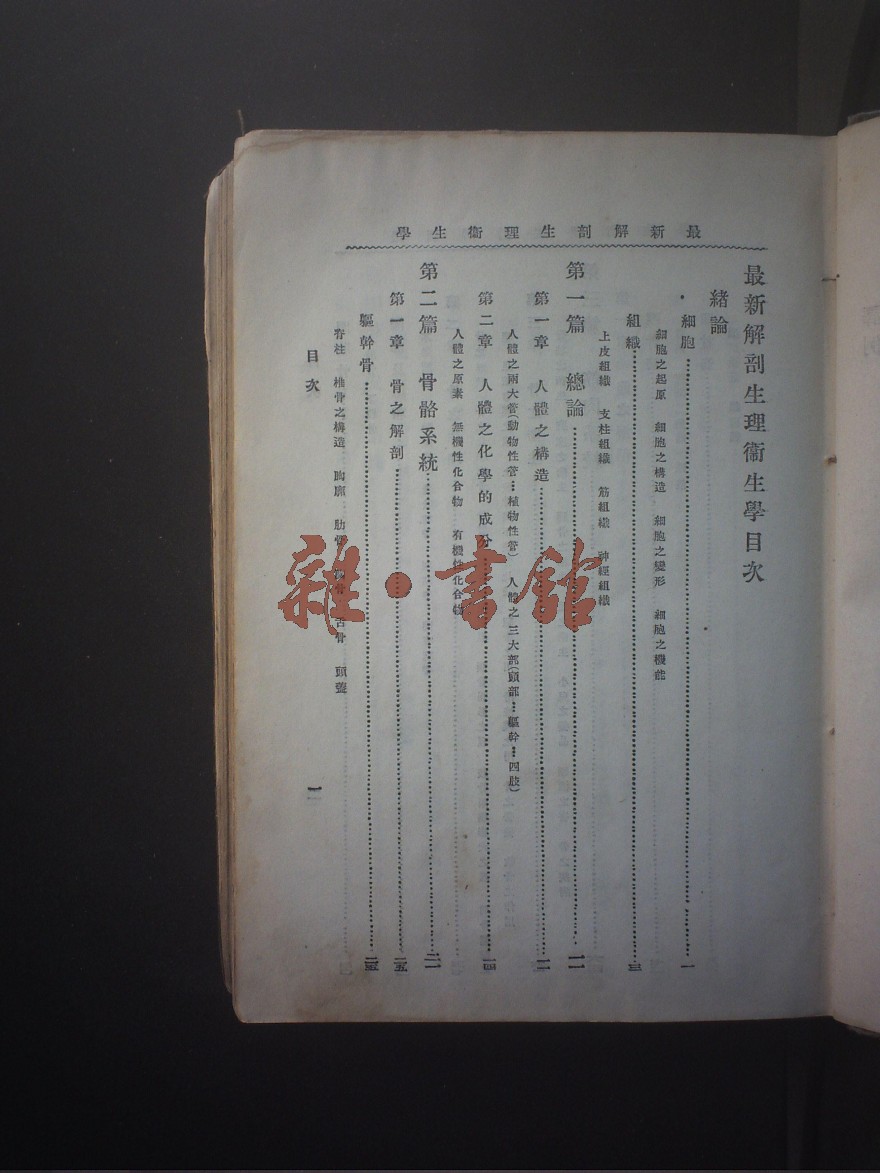 最新解剖生理衞生學
最新解剖生理衞生學目次
緒論
細胞……一
細胞之起原 細胞之構造 細胞之變形 細胞之機能
組織……三
上皮組織 支柱組織 筋組織 神經組織
第一篇 總論……一一
第一章 人體之構造……一一
人體之兩大管(動物性管…植物性管) 人體之三大部(頭部…軀幹…四肢)
第二章 人體之化學的成分……一四
人體之原素 無機性化合物 有機性化合物
第二篇 骨骼系統……二一
第一章 骨之解剖……二五
軀幹骨……二五
脊柱 椎骨之構造 胸廓 肋骨 骨 舌骨 頭蓋
目次
一
雜·書館